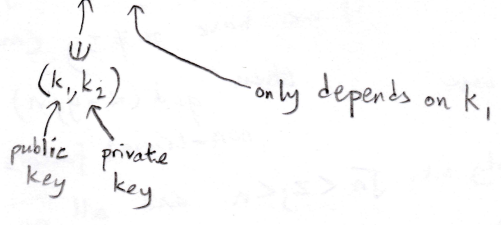 (k₁, k₂)
only depends on k₁
public
key
private
key